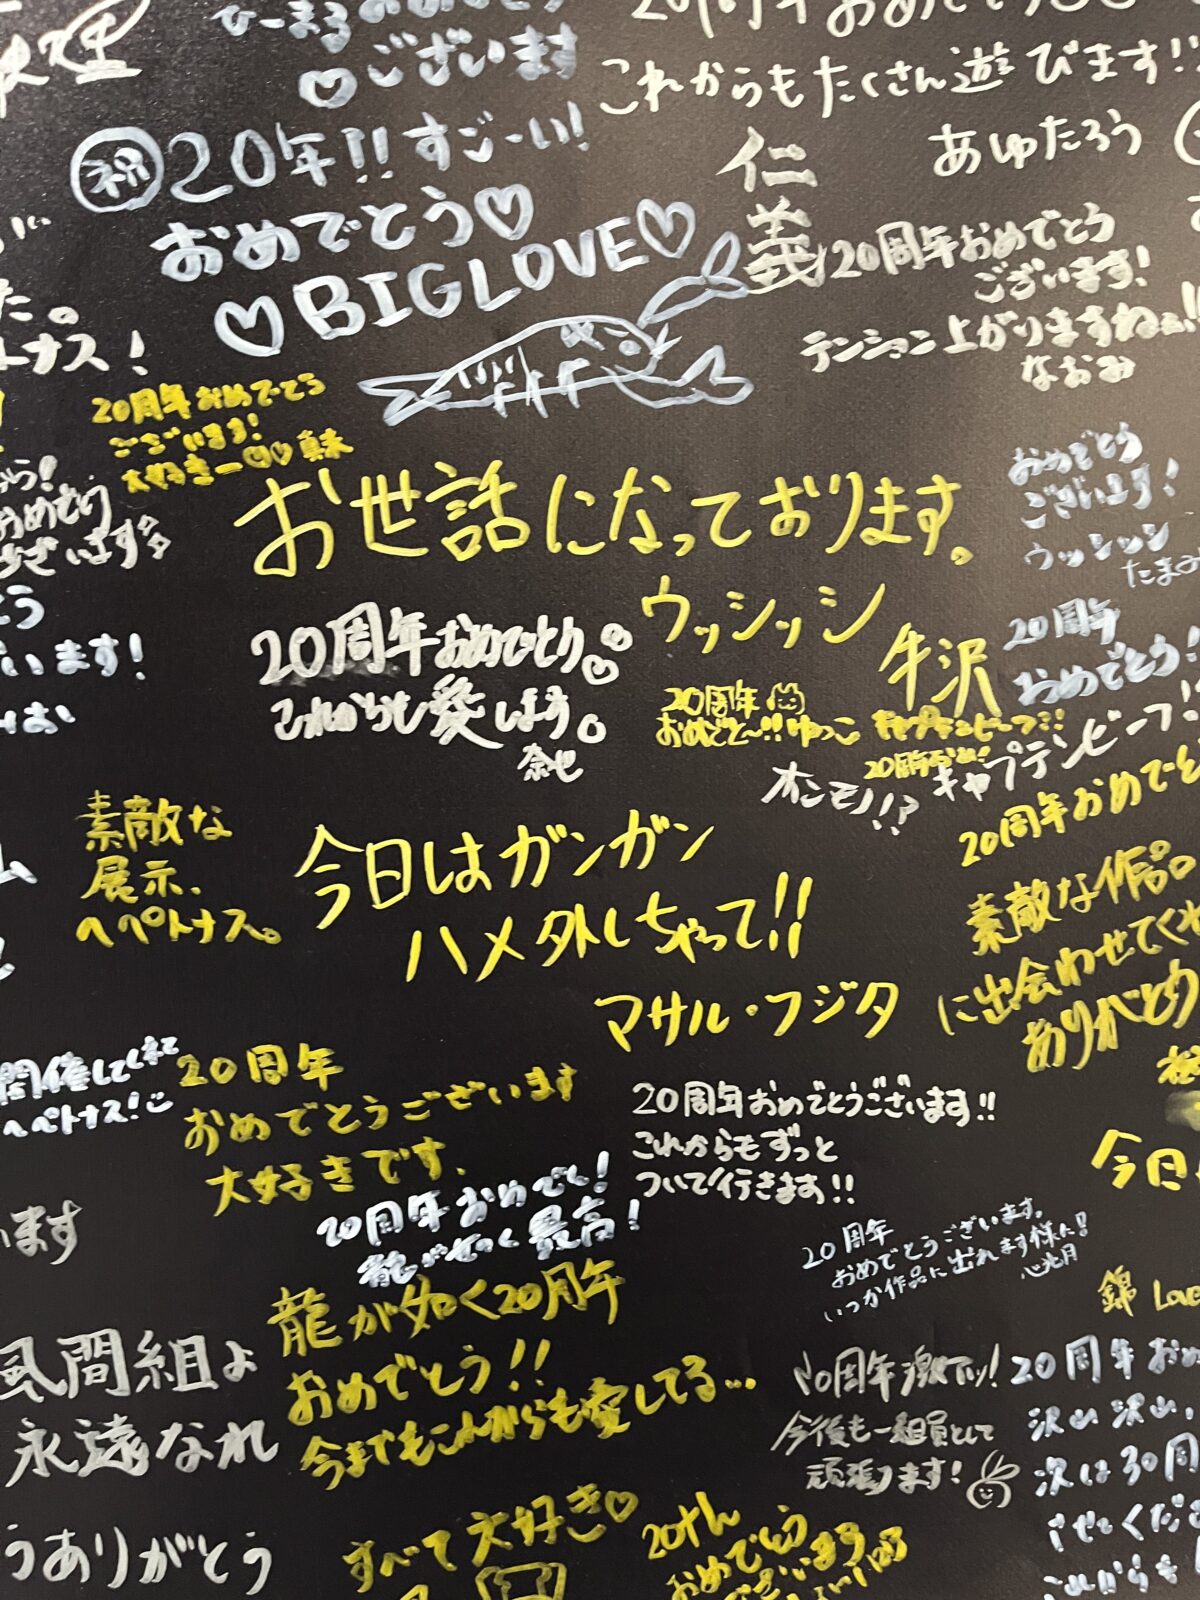 ございます
20周年おめでとう
これからもたくさん遊びます!!
あゆたろう
祝20年!!すごーい!
おめでとう♡
♡BIGLOVE♡
仁義
20周年おめでとう
ございます!
テンション上がりますねぇ!!
なおみ
トナス!
20周年おめでとう
ございます!
大好きー♡♡真未
お世話になっております。
ウッシッシ
牛沢
おめでとう
ございます!
ウッシッシ
たまみ
20周年
おめでとう!
20周年おめでとう
これからも愛します。
奈七
20周年
おめでと〜!!ゆっこ
キャプテンビーフ!!
20周年おめ!
オンモノ!!?
キャプテンビーフ!!
素敵な
展示、
ヘペトナス。
今日はガンガン
ハメ外しちゃって!!
マサル・フジタ
20周年おめでと
素敵な作品
に出会わせてくれ
ありがとう
開催してくれて
ヘペトナス!
20周年
おめでとうございます
大好きです.
20周年おめでとうございます!!
これからもずっと
ついて行きます!!
今日
20周年おめでと!
龍が如く最高!
20周年
おめでとうございます。
いつか作品に出れます様に!
心北月
錦 Love
龍が如く20周年
おめでとう!!
今までもこれからも愛してる...
います
風間組よ
永遠なれ
20周年激アツッ!
今後も一組員として
頑張ります!
20周年おめ
沢山沢山、
次は30周
させてくださ
これからも
うありがとう
すべて大好き♡
20th
おめでとう
ございます